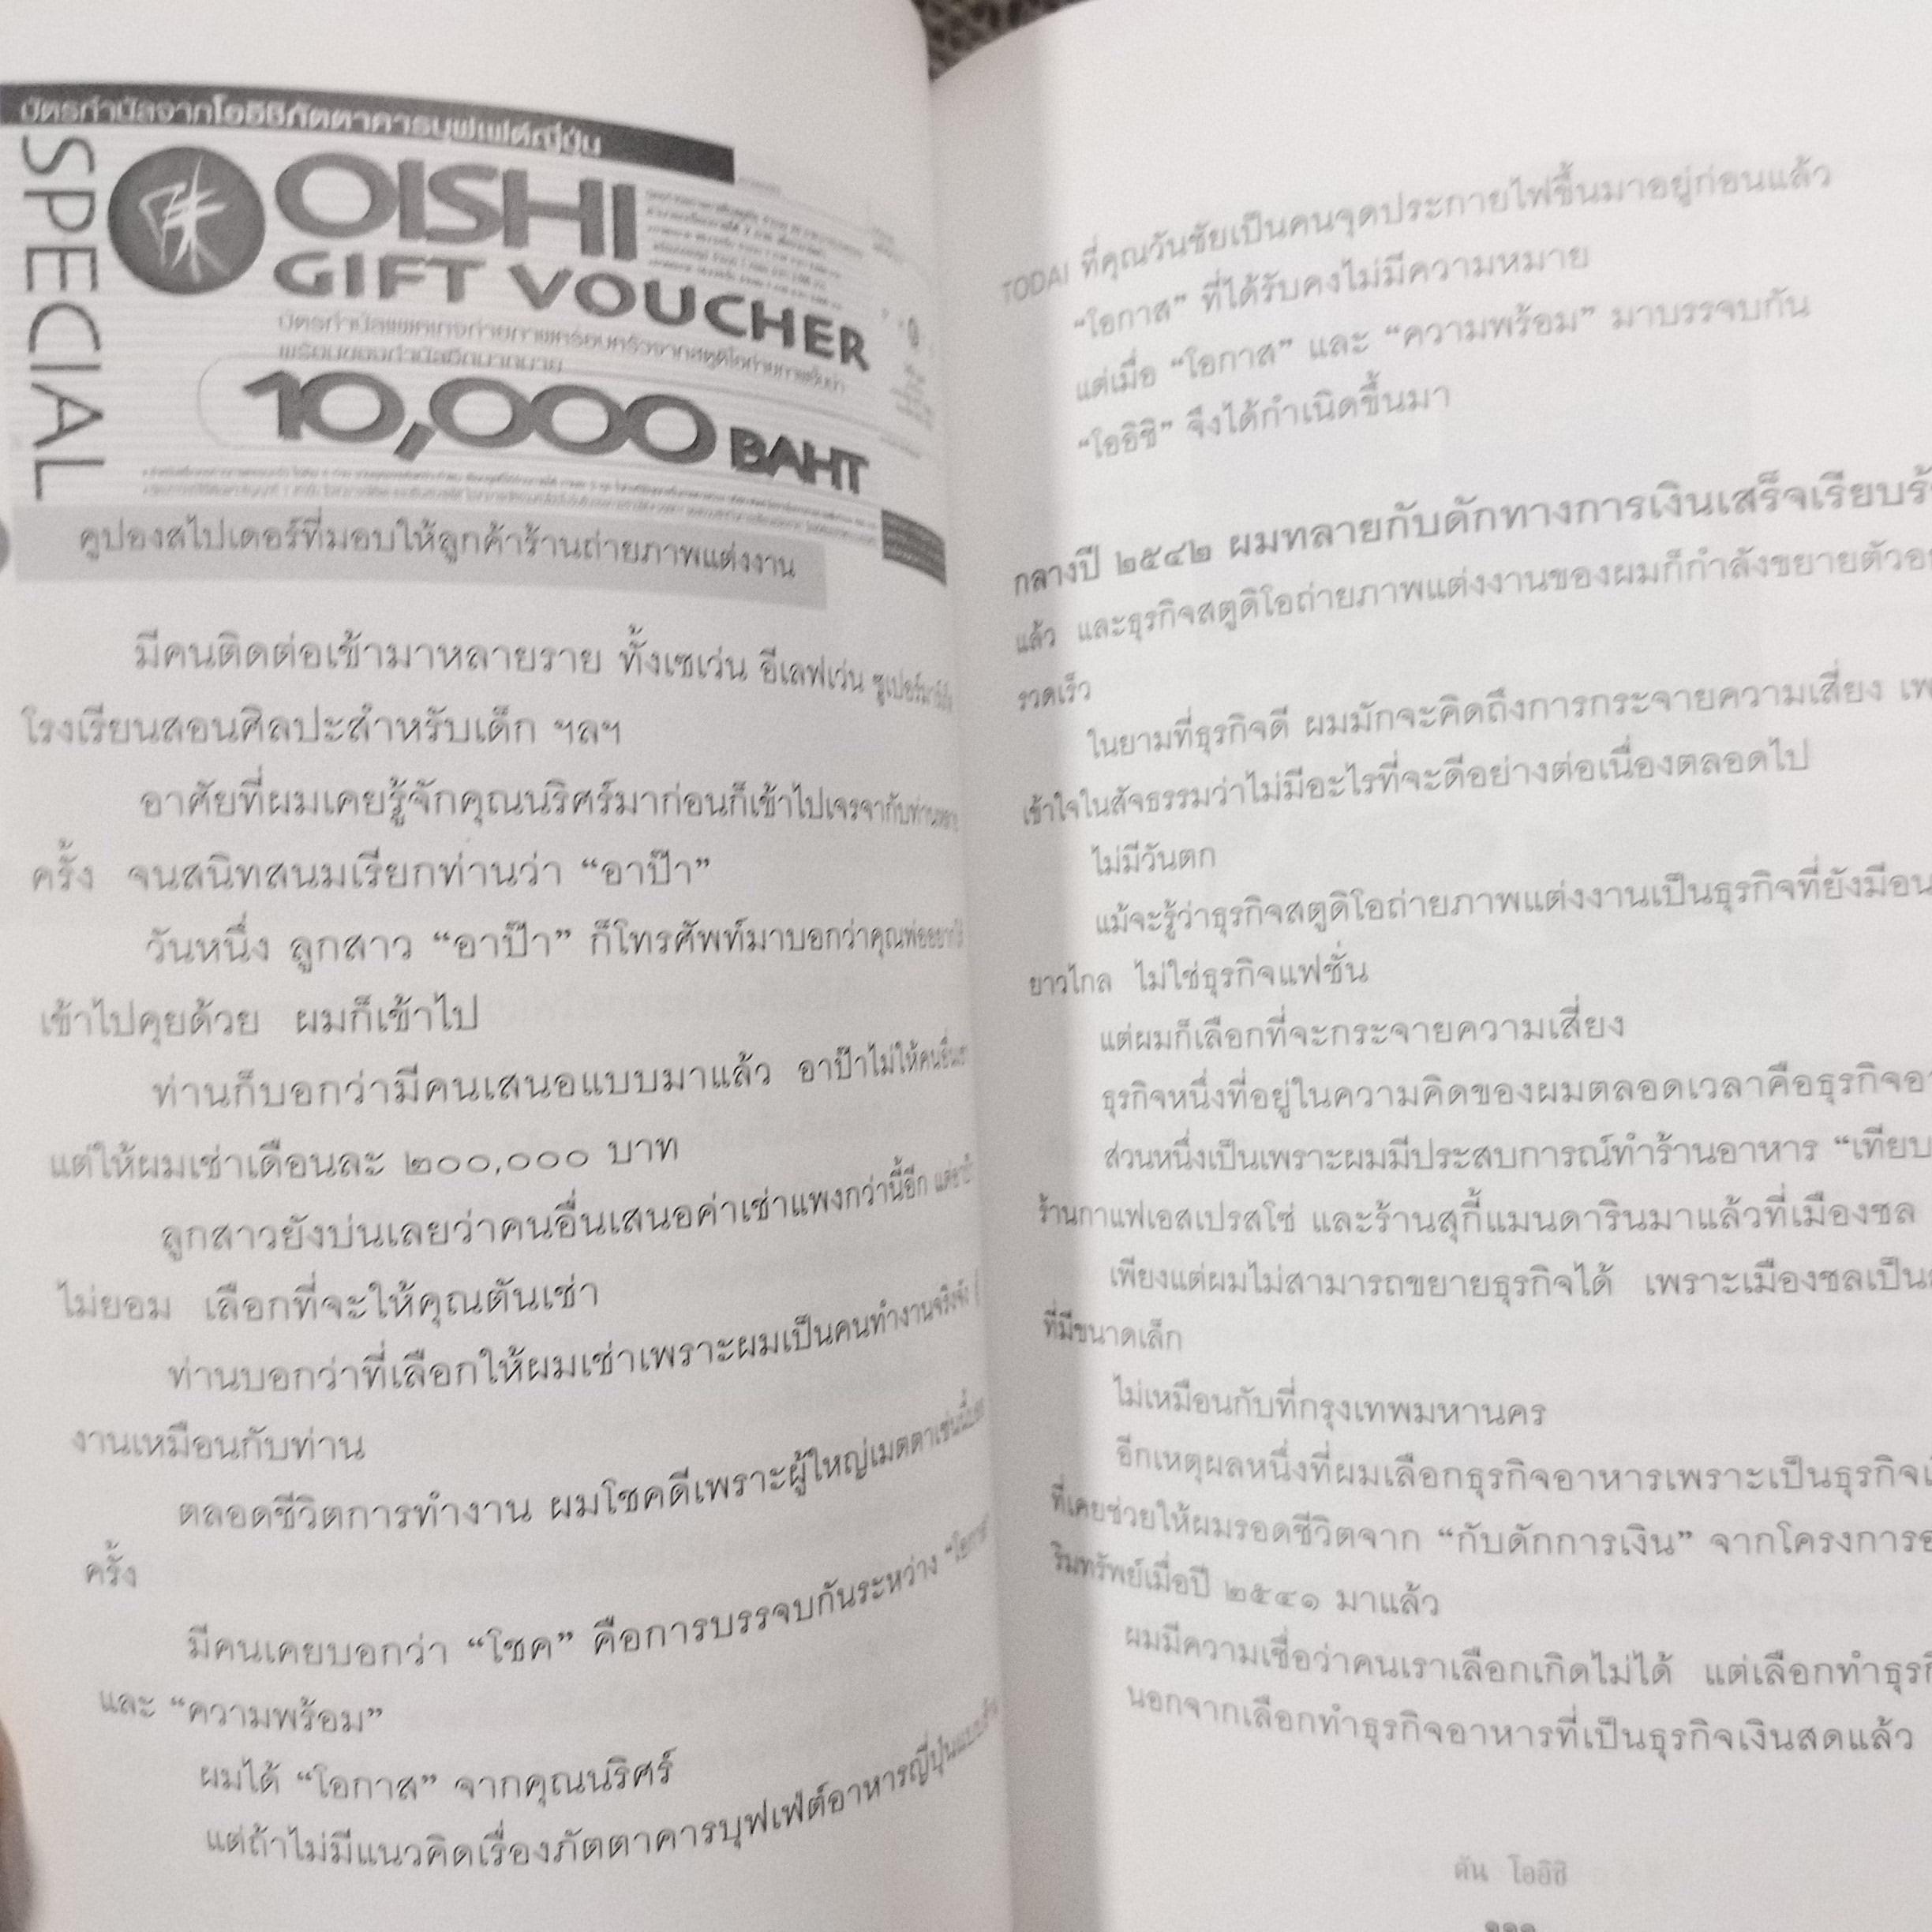 บัตรกำนัลจากโออิชิภัตตาคารบุฟเฟต์ญี่ปุ่น
SPECIAL
OISHI
GIFT VOUCHER
บัตรกำนัลแพคเกจถ่ายภาพครอบครัวจากสตูดิโอถ่ายภาพชั้นนำ
พร้อมของกำนัลอีกมากมาย
10,000 BAHT
คูปองสไปเดอร์ที่มอบให้ลูกค้าร้านถ่ายภาพแต่งงาน
มีคนติดต่อเข้ามาหลายราย ทั้งเซเว่น อีเลฟเว่น
โรงเรียนสอนศิลปะสำหรับเด็ก ฯลฯ
อาศัยที่ผมเคยรู้จักคุณนริศร์มาก่อนก็เข้าไปเจรจากับท่านหลาย
ครั้ง จนสนิทสนมเรียกท่านว่า “อาป๊า”
วันหนึ่ง ลูกสาว “อาป๊า” ก็โทรศัพท์มาบอกว่าคุณพ่ออยากให้
เข้าไปคุยด้วย ผมก็เข้าไป
ท่านก็บอกว่ามีคนเสนอแบบมาแล้ว อาป๊าไม่ให้คนอื่นเช่า
แต่ให้ผมเช่าเดือนละ ๒๐๐,๐๐๐ บาท
ลูกสาวยังบ่นเลยว่าคนอื่นเสนอค่าเช่าแพงกว่านี้อีก แต่อาป๊า
ไม่ยอม เลือกที่จะให้คุณตันเช่า
ท่านบอกว่าที่เลือกให้ผมเช่าเพราะผมเป็นคนทำงานจริงจัง
งานเหมือนกับท่าน
ตลอดชีวิตการทำงาน ผมโชคดีเพราะผู้ใหญ่เมตตาเช่นนี้
ครั้ง
มีคนเคยบอกว่า “โชค” คือการบรรจบกันระหว่าง “โอกาส”
และ “ความพร้อม”
ผมได้ “โอกาส” จากคุณนริศร์
แต่ถ้าไม่มีแนวคิดเรื่องภัตตาคารบุฟเฟ่ต์อาหารญี่ปุ่นแบบร้าน
TODAI ที่คุณวันชัยเป็นคนจุดประกายไฟขึ้นมาอยู่ก่อนแล้ว
“โอกาส” ที่ได้รับคงไม่มีความหมาย
แต่เมื่อ “โอกาส” และ “ความพร้อม” มาบรรจบกัน
“โออิชิ” จึงได้กำเนิดขึ้นมา
กลางปี ๒๕๔๒ ผมทลายกับดักทางการเงินเสร็จเรียบร้
แล้ว และธุรกิจสตูดิโอถ่ายภาพแต่งงานของผมก็กำลังขยายตัวอย่
รวดเร็ว
ในยามที่ธุรกิจดี ผมมักจะคิดถึงการกระจายความเสี่ยง เพ
เข้าใจในสัจธรรมว่าไม่มีอะไรที่จะดีอย่างต่อเนื่องตลอดไป
ไม่มีวันตก
แม้จะรู้ว่าธุรกิจสตูดิโอถ่ายภาพแต่งงานเป็นธุรกิจที่ยังมีอน
ยาวไกล ไม่ใช่ธุรกิจแฟชั่น
แต่ผมก็เลือกที่จะกระจายความเสี่ยง
ธุรกิจหนึ่งที่อยู่ในความคิดของผมตลอดเวลาคือธุรกิจอา
ส่วนหนึ่งเป็นเพราะผมมีประสบการณ์ทำร้านอาหาร “เทียบ
ร้านกาแฟเอสเปรสโซ่ และร้านสุกี้แมนดารินมาแล้วที่เมืองชล
เพียงแต่ผมไม่สามารถขยายธุรกิจได้ เพราะเมืองชลเป็น
ที่มีขนาดเล็ก
ไม่เหมือนกับที่กรุงเทพมหานคร
อีกเหตุผลหนึ่งที่ผมเลือกธุรกิจอาหารเพราะเป็นธุรกิจเ
ที่เคยช่วยให้ผมรอดชีวิตจาก “กับดักการเงิน” จากโครงการอ
รินทรัพย์เมื่อปี ๒๕๔๑ มาแล้ว
ผมมีความเชื่อว่าคนเราเลือกเกิดไม่ได้ แต่เลือกทำธุรกิ
นอกจากเลือกทำธุรกิจอาหารที่เป็นธุรกิจเงินสดแล้ว
ตัน โออิชิ